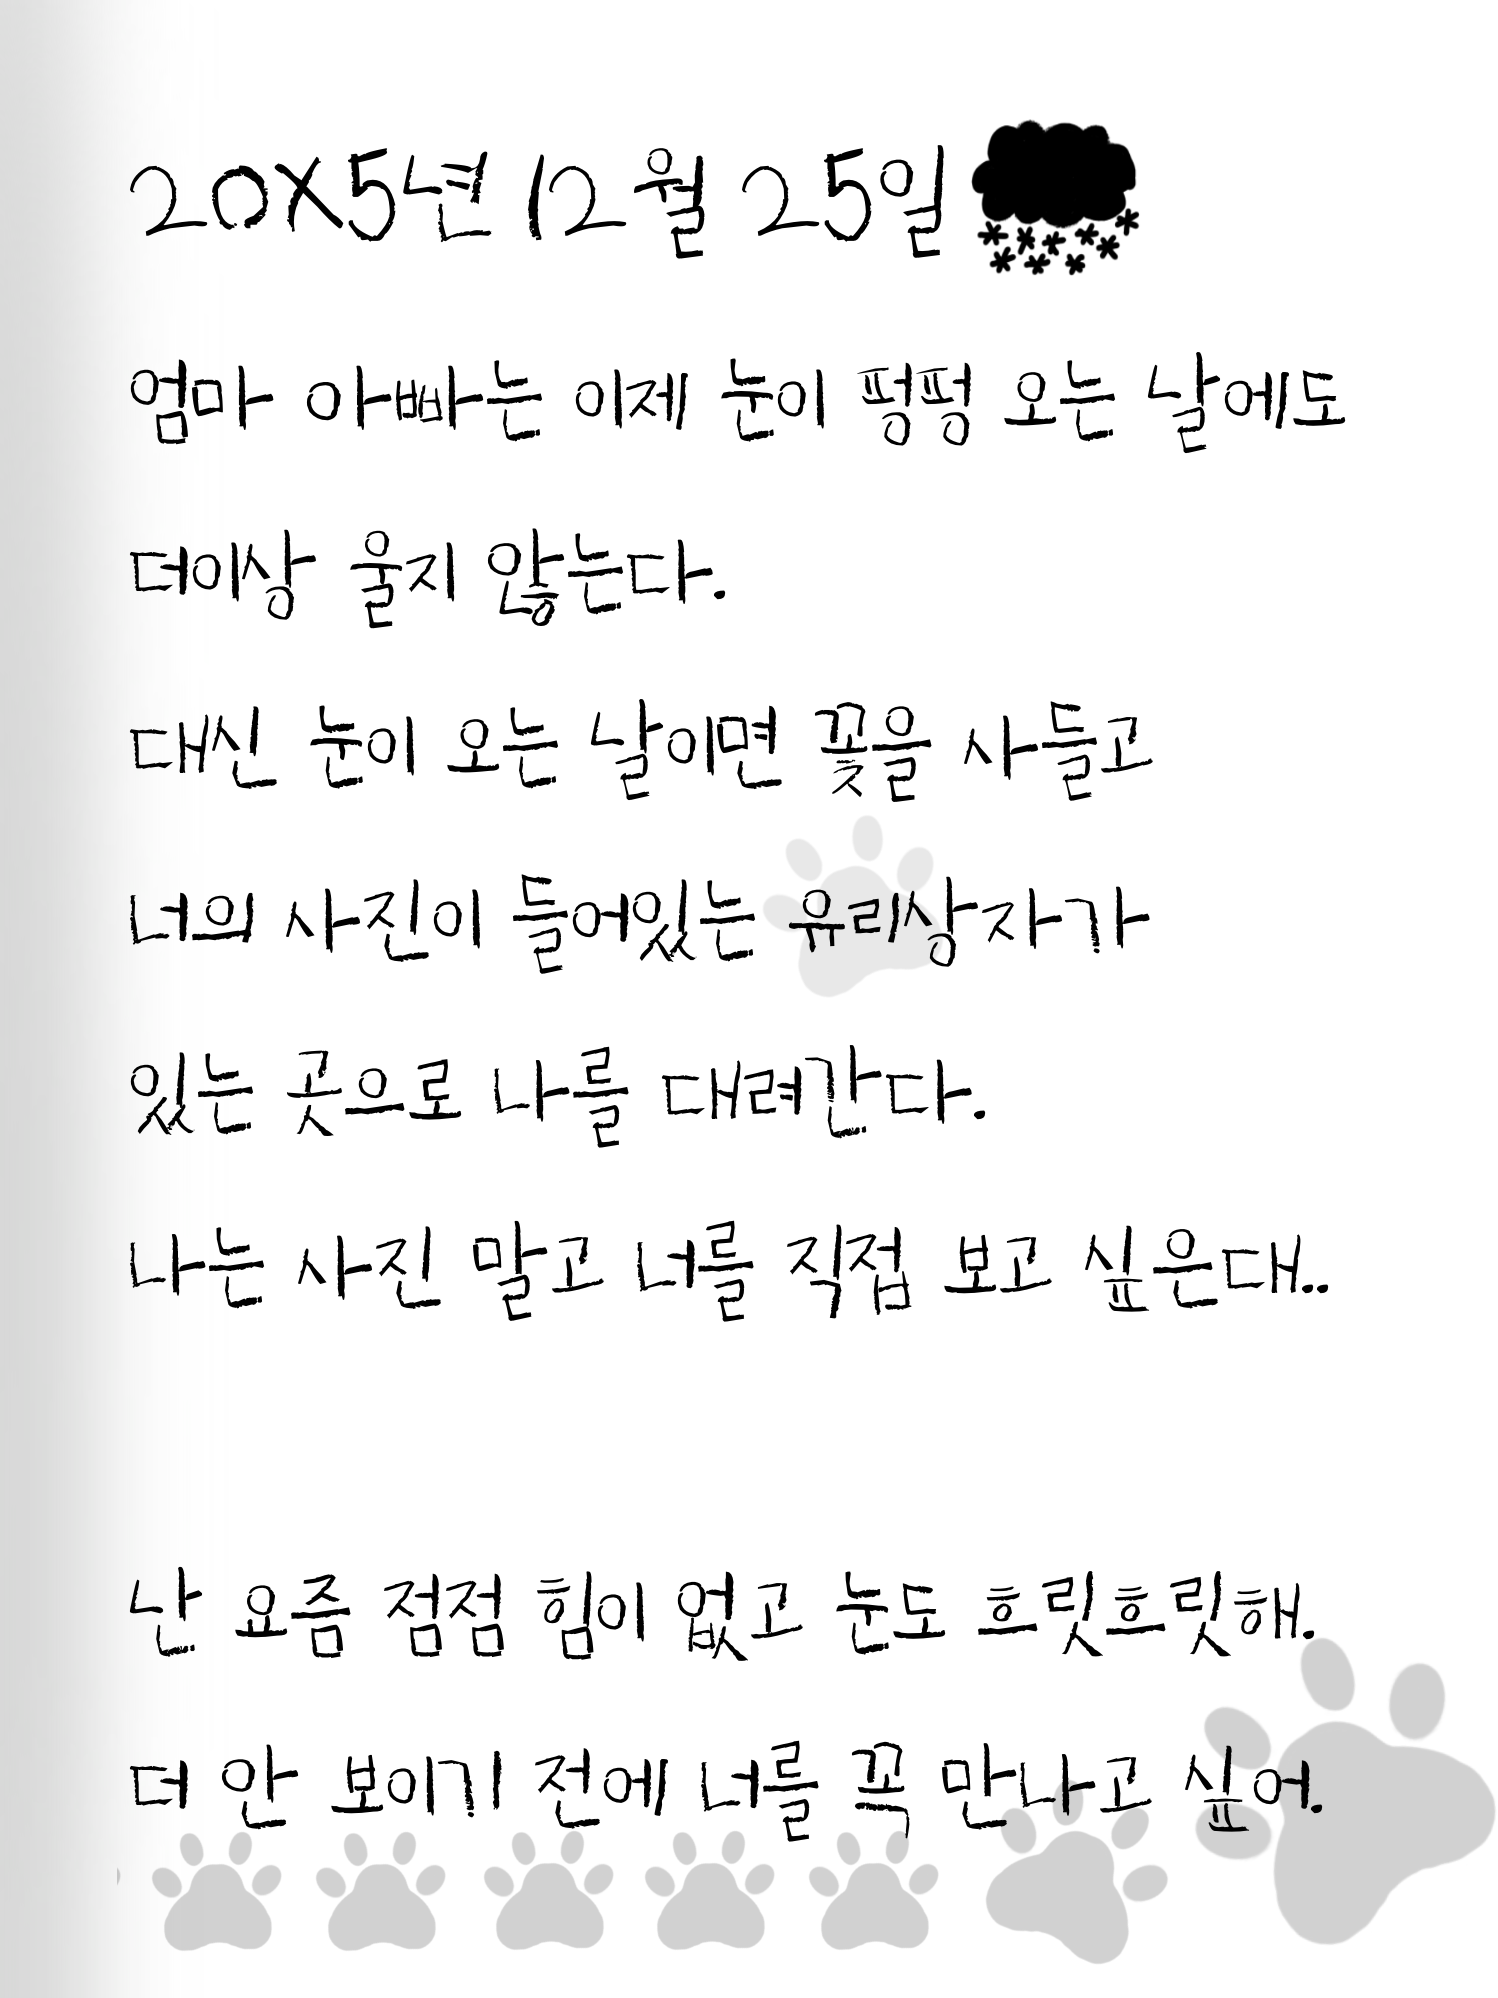 20X5년 12월 25일
엄마 아빠는 이제 눈이 펑펑 오는 날에도
더이상 울지 않는다.
대신 눈이 오는 날이면 꽃을 사들고
너의 사진이 들어있는 유리상자가
있는 곳으로 나를 대려간다.
나는 사진 말고 너를 직접 보고 싶은대..
난 요즘 점점 힘이 없고 눈도 흐릿흐릿해.
더 안 보이기 전에 너를 꼭 만나고 싶어.